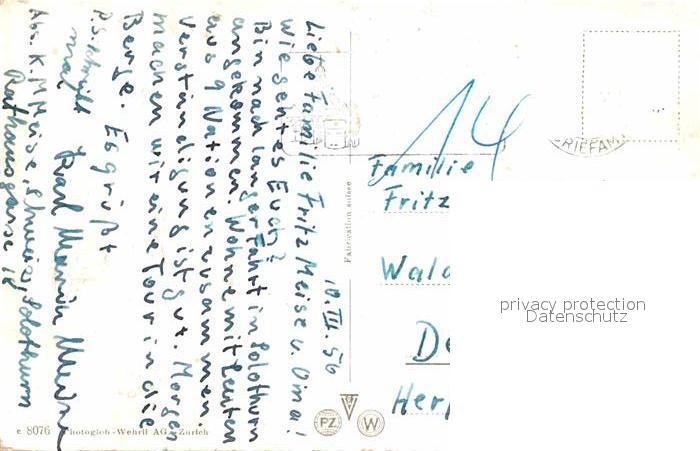 18.III.56
Liebe Familie Fritz Meise u. Oma!
Wie geht es Euch?
Bin nach langer Fahrt in Solothurn
angekommen. Wohne mit Leuten
aus 9 Nationen zusammen.
Verständigung ist gut. Morgen
machen wir eine Tour in die
Berge. Es grüßt
Karl Martin Meise
P.S. schreibt
mal
Abs. K. M Meise, Schweiz, Solothurn
Rathausgasse 18
14
RIEFAM
Familie
Fritz
Wald
De
Her
privacy protection
Datenschutz
Fabrication suisse
PZ
W
c 8076 Photoglob-Wehrli AG., Zürich